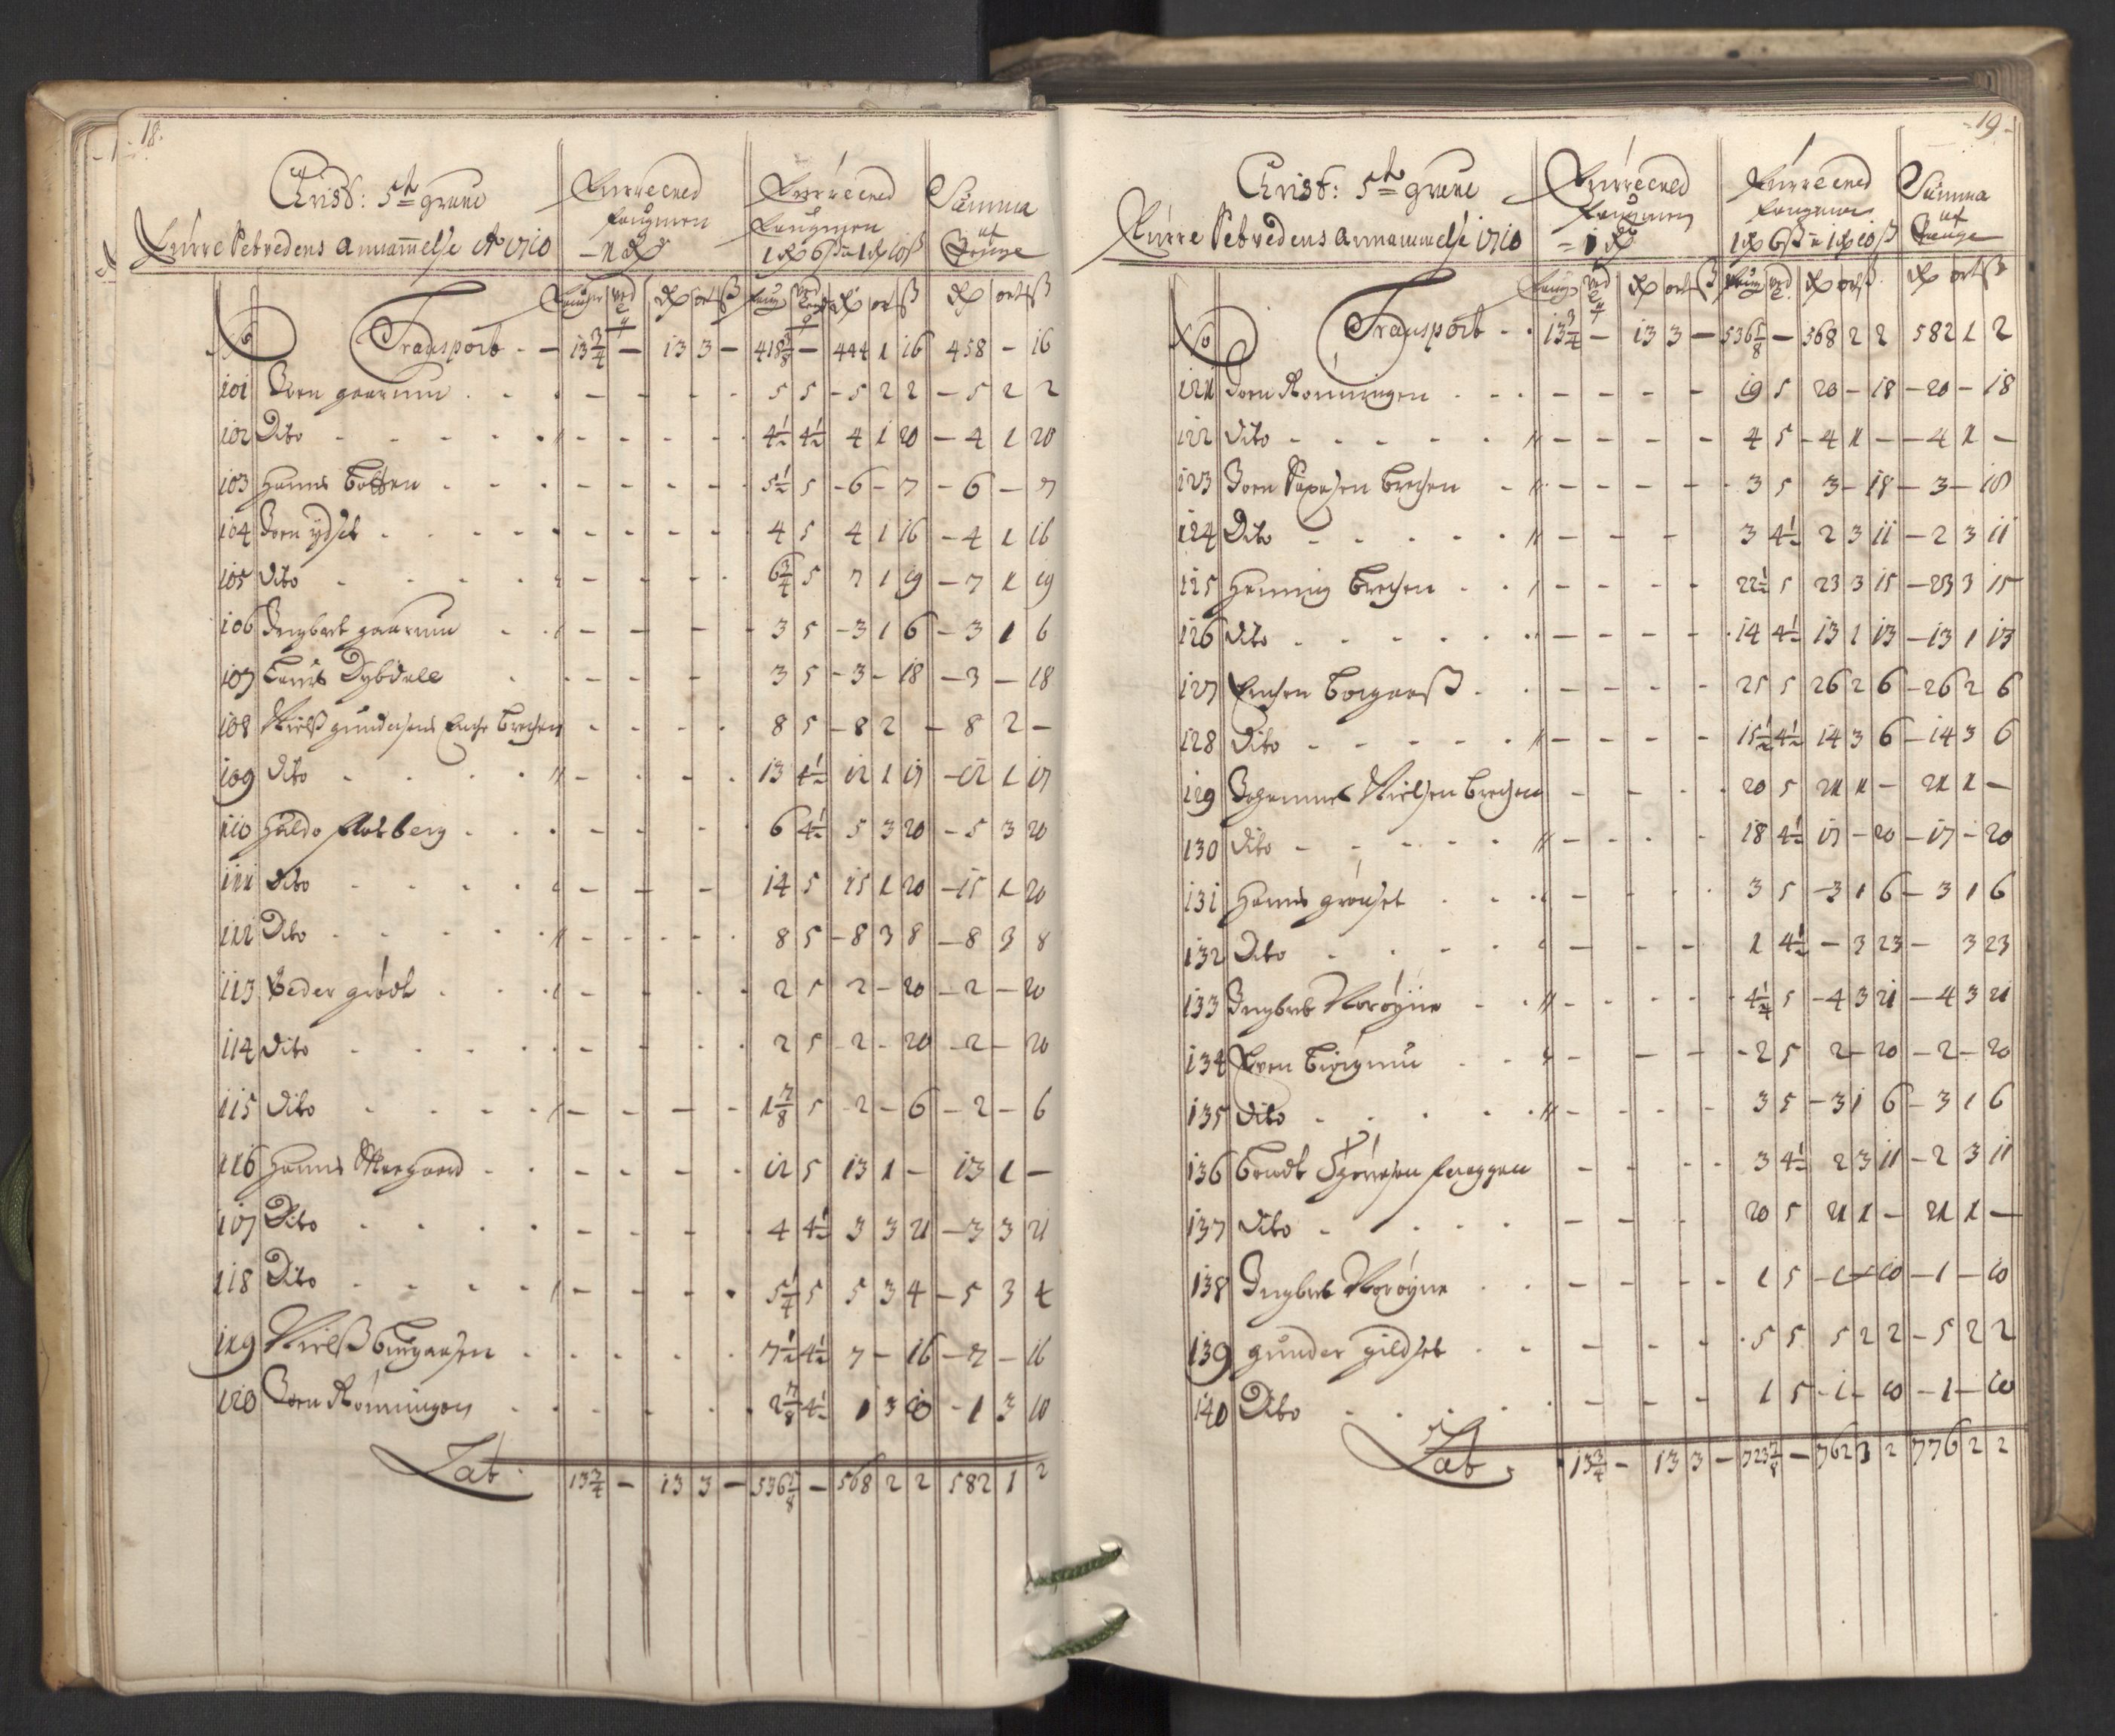 18.
Christ: 5te grube
Furre Setvedens Annammelse Ao 1710
Furreeved faugnen 1 Rdr
Furreeved faugnen 1 Rd 6 ß a 1 Rd 10 ß
Summa af Penge
No Transport - - 13 3/4 - 13 3 - 418 3/8 - 444 1 16 458 - 16
101 Joen gaarum 5 5 - 5 2 2 - 5 2 2
102 Dito 4 1/2 4 1/2 4 1 20 - 4 1 20
103 Hanns 5 1/2 5 - 6 - 7 - 6 - 7
104 Joen ydset 4 5 4 1 16 - 4 1 16
105 Dito 6 3/4 5 7 1 19 - 7 1 19
106 Ingbret gaarum 3 5 - 3 1 6 - 3 1 6
107 Dybdale 3 5 - 3 - 18 - 3 - 18
108 Nielß gundersens Enche 8 5 - 8 2 - 8 2 -
109 Dito 13 4 1/2 12 1 17 - 12 1 17
110 Haldo Aasberg 6 4 1/2 5 3 20 - 5 3 20
111 Dito 14 5 15 1 20 - 15 1 20
112 Dito 8 5 - 8 3 8 - 8 3 8
113 Peder grødt 2 5 2 - 20 - 2 - 20
114 Dito 2 5 - 2 - 20 - 2 - 20
115 Dito 1 7/8 5 2 - 6 - 2 - 6
116 Hanns Moegaard 12 5 13 1 - 13 1 -
117 Dito 4 4 1/2 3 3 21 - 3 3 21
118 Dito 5 1/4 5 5 3 4 - 5 3 4
119 Nielß 7 1/2 4 1/2 7 - 16 - 7 - 16
120 Joen Rønningen 2 7/8 4 1/2 1 3 10 - 1 3 10
Lat. 13 3/4 - 13 3 - 536 5/8 - 568 2 2 582 1 2
19
Christ: 5te grube
Furre Setvedens Annammelse 1710
Furreeved faugnen = 1 Rdr
Furreeved faugnen 1 Rd 6 ß a 1 Rd 10 ß
Summa af Penge
No Transport - - 13 3/4 - 13 3 - 536 5/8 - 568 2 2 582 1 2
121 Joen Rønningen 19 5 20 - 18 - 20 - 18
122 Dito 4 5 - 4 1 - - 4 1 -
123 Joen 3 5 3 - 18 - 3 - 18
124 Dito 3 4 1/2 2 3 11 - 2 3 11
125 Henning 22 1/2 5 23 3 15 - 23 3 15
126 Dito 14 4 1/2 13 1 13 - 13 1 13
127 25 5 26 2 6 - 26 2 6
128 Dito 15 1/2 4 1/2 14 3 6 - 14 3 6
129 Johannes Nielsen 20 5 21 1 - 21 1 -
130 Dito 18 4 1/2 17 - 20 - 17 - 20
131 Hanns grønset 3 5 - 3 1 6 - 3 1 6
132 Dito 1 4 1/2 - 3 23 - 3 23
133 Ingbret Norøyne 4 1/4 5 - 4 3 21 - 4 3 21
134 Even - 2 5 2 - 20 - 2 - 20
135 Dito 3 5 - 3 1 6 - 3 1 6
136 3 4 1/2 2 3 11 - 2 3 11
137 Dito 20 5 21 1 - 21 1 -
138 Ingbret Norøyne 1 5 - 1 - 10 - 1 - 10
139 gunder gildset 5 5 5 2 2 - 5 2 2
140 Dito 1 5 - 1 - 10 - 1 - 10
Lat. 13 3/4 - 13 3 - 723 7/8 - 762 3 2 776 2 2